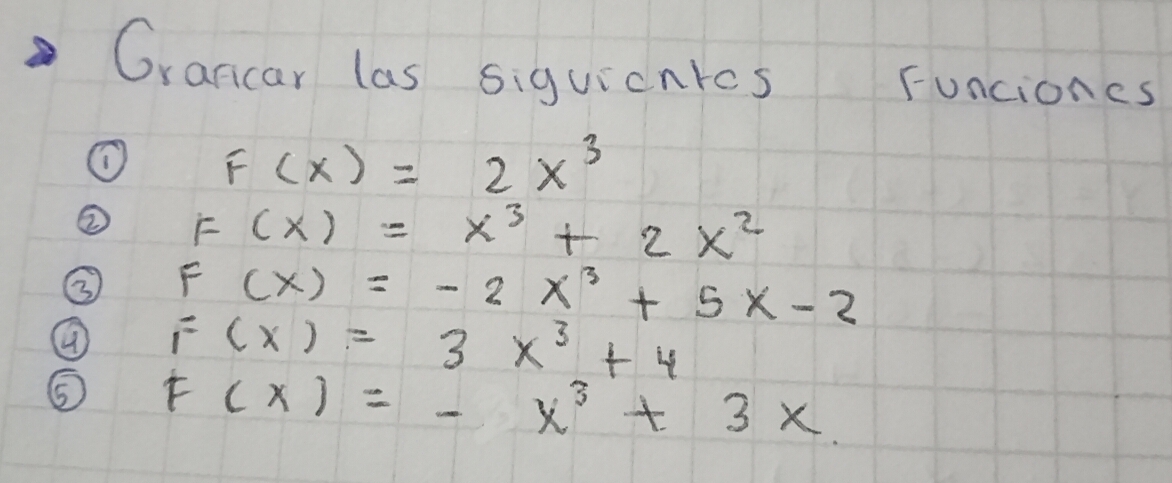 ➤ Graficar las siguientes Funciones
① F(x) = 2x³
② F(x) = x³ + 2x²
③ F(x) = -2x³ + 5x - 2
④ F(x) = 3x³ + 4
⑤ F(x) = - x³ + 3x.